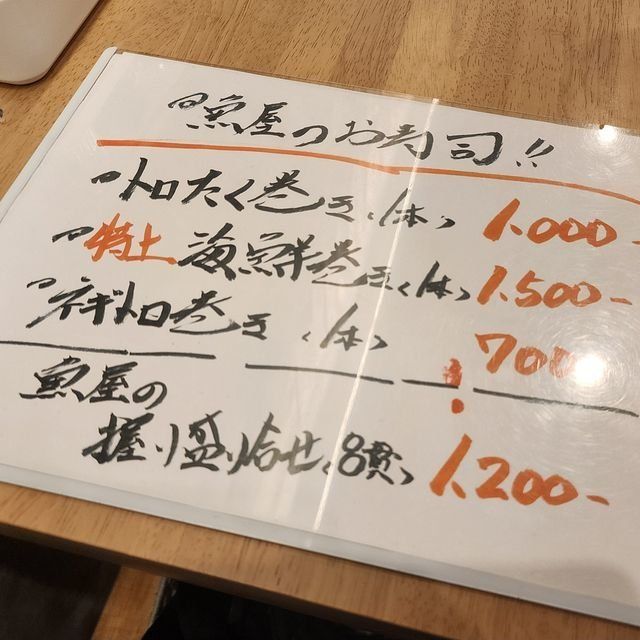 魚屋のお寿司!!
トロたく巻き(1本) 1,000-
特上 海鮮巻き(1本) 1,500-
ネギトロ巻き(1本) 700
魚屋の
握り盛り合せ(8貫) 1,200-